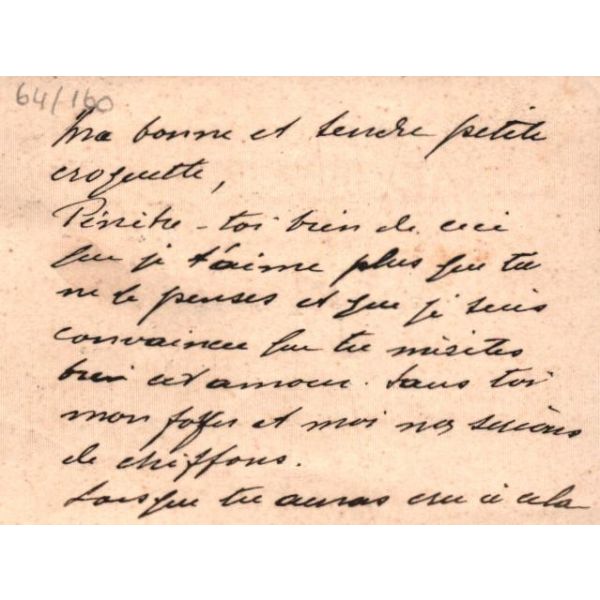 64/160
Ma bonne et tendre petite
croquette,
Pénètre-toi bien de ceci
que je t'aime plus que tu
ne le penses et que je suis
convaincu que tu mérites
bien cet amour. Sans toi
mon foyer et moi nous serions
de chiffons.
Lorsque tu auras cru à cela